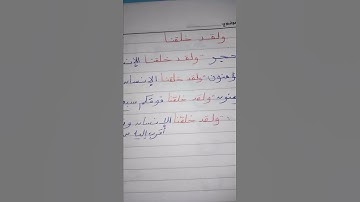 ولقد خلقنا
الحجر - ولقد خلقنا الإنسا
المؤمنون - ولقد خلقنا الإنسان
المؤمنون - ولقد خلقنا فوقكم سبع
ولقد خلقنا الإنسان و
أقرب إليه